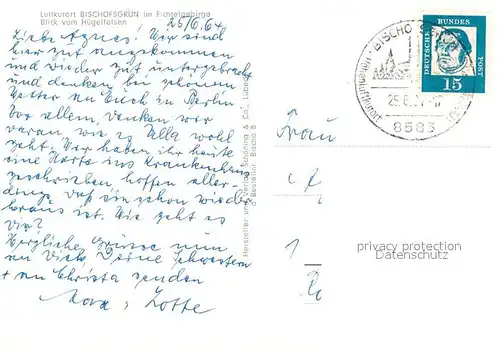 Luftkurort BISCHOFSGRÜN im Fichtelgebirge
Blick vom Hügelfelsen
25/6.64
Liebe Agnes! Wir sind
hier gut angekommen
und wieder gut untergebracht
und denken bei schönem
Wetter an Euch in Berlin.
Vor allem, denken wir
daran wie es Ella wohl
geht. Wir haben ihr heute
eine Karte ins Krankenhaus
geschrieben, hoffen aller-
dings, daß sie schon wieder
heraus ist. Wie geht es
Dir?
Herzliche Grüsse nun
an Dich, Deine Schwestern
+ an Christa senden
Lotte
Hersteller und Verlag Schöning & Co., Lübeck
Bestellnr. Bischd 8
BISCHO
Höhenluftkurort
25.6.
8583
DEUTSCHE BUNDESPOST
15
Frau
1
privacy protection
Datenschutz